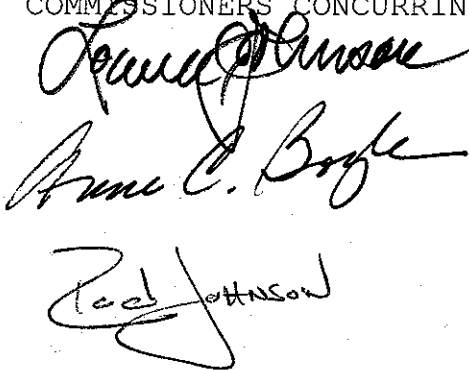 COMMISSIONERS CONCURRIN
Lowell Johnson
Anne C. Boyle
Rod Johnson